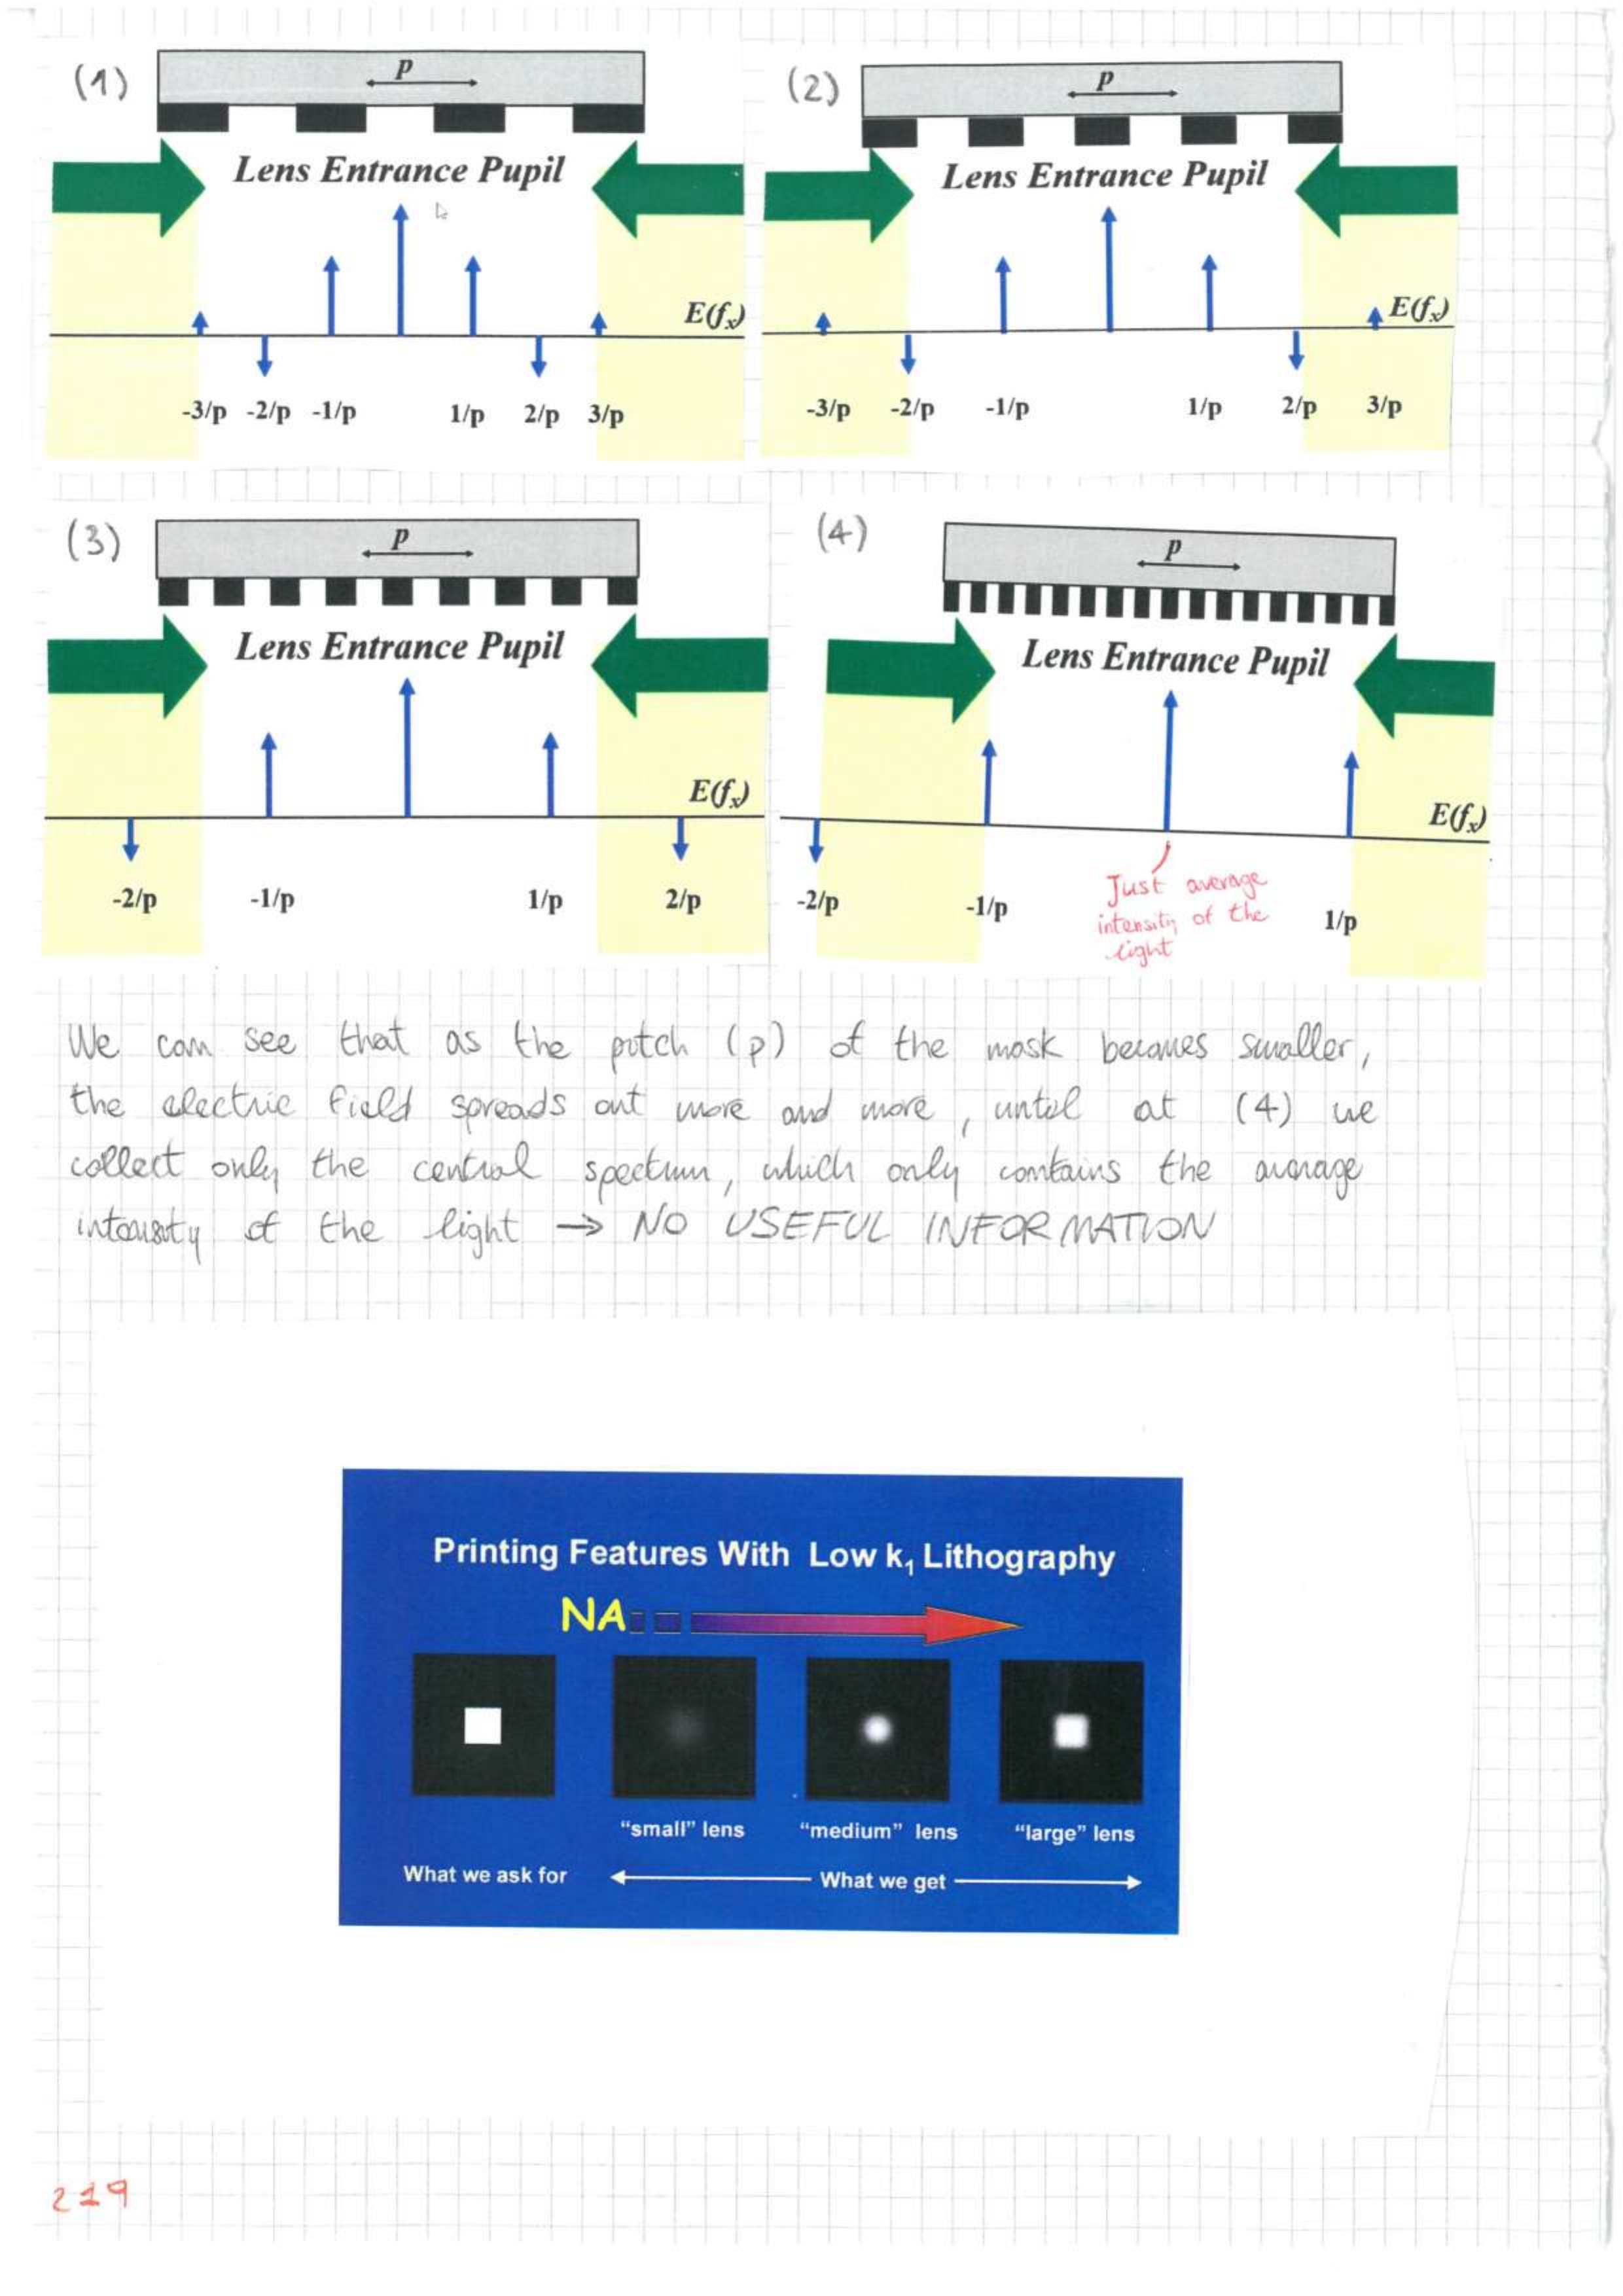 (1)
p
Lens Entrance Pupil
E(fx)
-3/p -2/p -1/p 1/p 2/p 3/p
(2)
p
Lens Entrance Pupil
E(fx)
-3/p -2/p -1/p 1/p 2/p 3/p
(3)
p
Lens Entrance Pupil
E(fx)
-2/p -1/p 1/p 2/p
(4)
p
Lens Entrance Pupil
E(fx)
-2/p -1/p 1/p
Just average
intensity of the
light
We can see that as the pitch (p) of the mask becomes smaller,
the electric field spreads out more and more, until at (4) we
collect only the central spectrum, which only contains the average
intensity of the light → NO USEFUL INFORMATION
Printing Features With Low k1 Lithography
NA
"small" lens "medium" lens "large" lens
What we ask for What we get
219